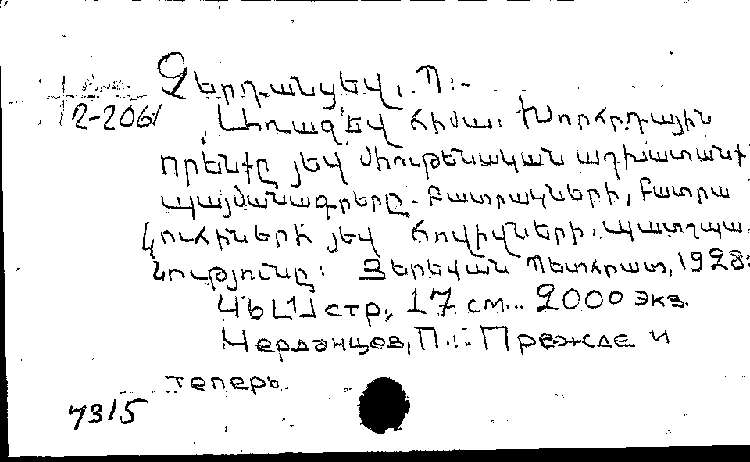 Չերդանցեվ, Պ.
2-2061
Առաջ եվ հիմա։ Խորհրդային
որենքը յեվ միութենական աշխատանքի
պայմանագրերը. բատրակների, բատրա
կուհիների յեվ հովիվների պաշտպա
նությունը։ Յերեվան Պետհրատ, 1928։
48 стр, 17 см.. 2000 экз.
Черданцев, П.: Прежде и
теперь.
7315